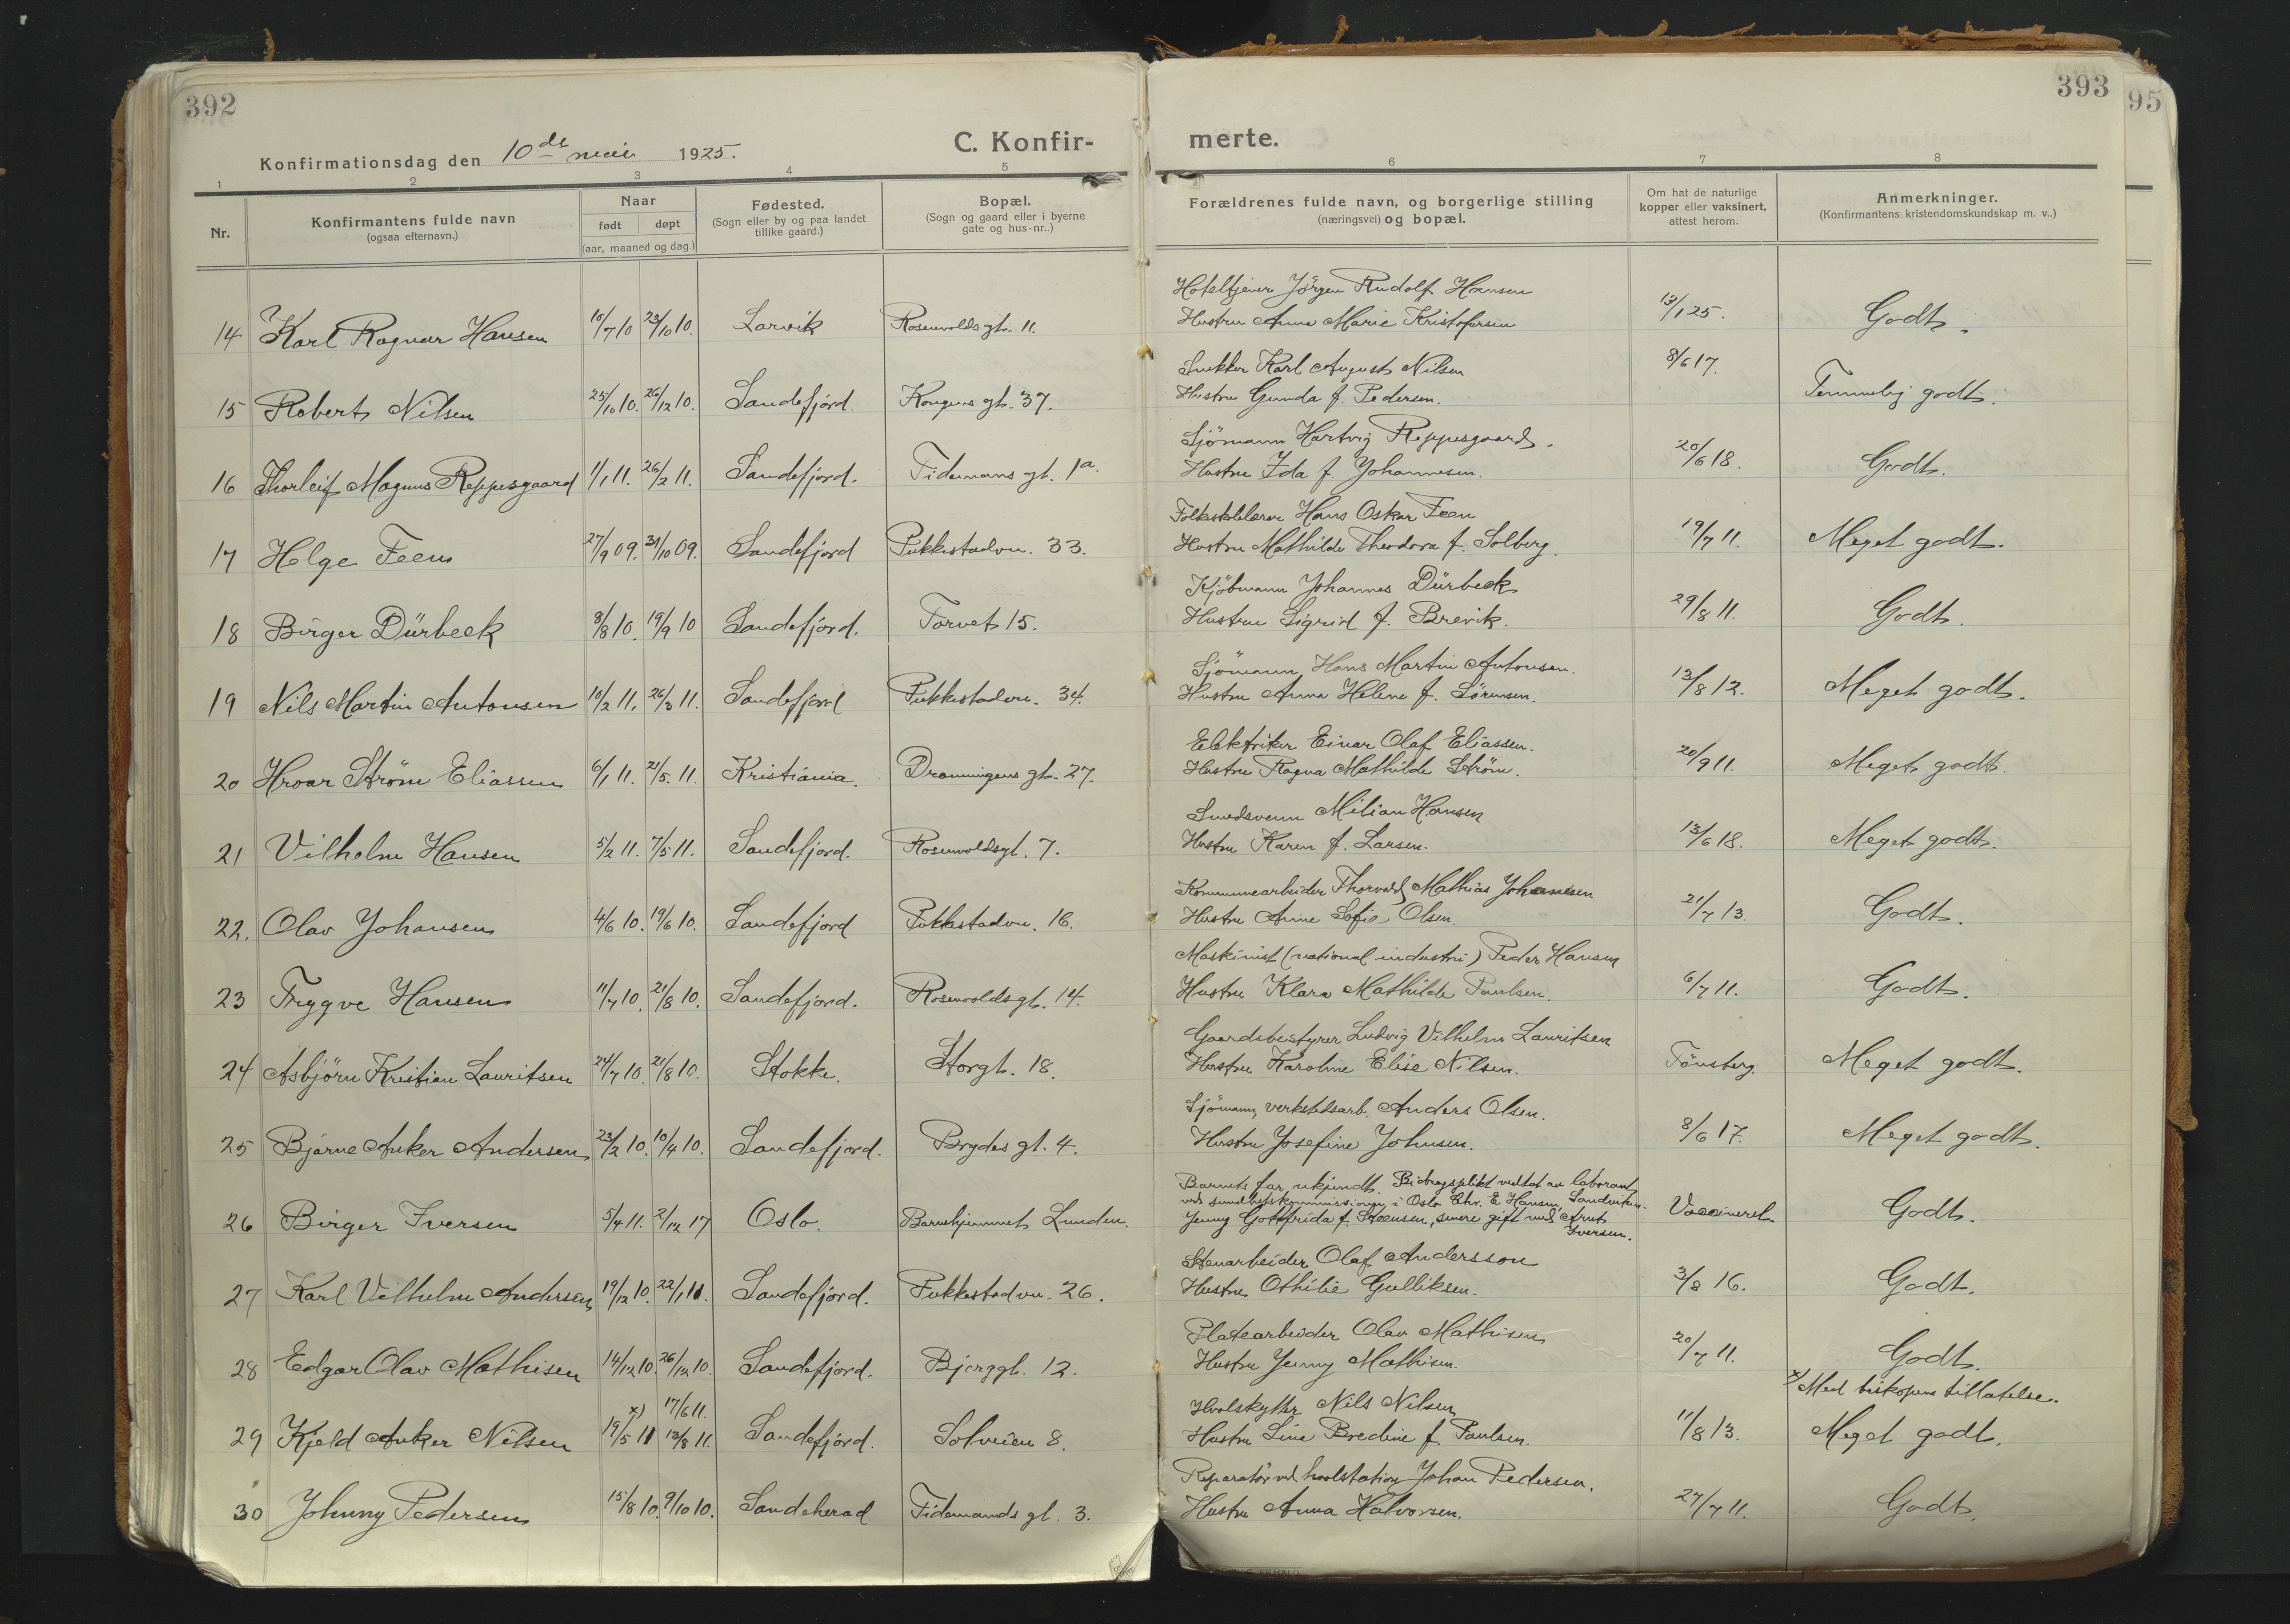 392
393
95
Konfirmationsdag den 10de mai 1925.
C. Konfir-
merte.
1 2 3 4 5 6 7 8
Nr.
Konfirmantens fulde navn
(ogsaa efternavn.)
Naar
født døpt
(aar, maaned og dag.)
Fødested.
(Sogn eller by og paa landet
tillike gaard.)
Bopæl.
(Sogn og gaard eller i byerne
gate og hus-nr..)
Forældrenes fulde navn, og borgerlige stilling
(næringsvei) og bopæl.
Om hat de naturlige
kopper eller vaksinert,
attest herom.
Anmerkninger.
(Konfirmantens kristendomskundskap m. v..)
Hoteltjener Jörgen Rudolf Hansen
14 Karl Ragnar Hansen 10/7 10 23/10 10. Larvik Rosenvoldsgt. 11. Hustru Anna Marie Kristofersen 13/1 25. Godt.
Snekker Karl August Nilsen
15 Robert Nilsen 25/10 10. 26/12 10. Sandefjord. Kongens gt. 37. Hustru Gunda f. Pedersen. 8/6 17. Temmelig godt.
Sjömann Hartvig Reppesgaard.
16 Thorleif Magnus Reppesgaard 1/1 11. 26/2 11. Sandefjord. Tidemans gt. 1a. Hustru Ida f. Johannesen. 20/6 18. Godt.
Folkeskolelærer Hans Oskar Feen
17 Helge Feen 27/9 09. 31/10 09. Sandefjord Pukkestadvn. 33. Hustru Mathilde Theodora f. Solberg. 19/7 11. Meget godt.
Kjöbmann Johannes Dürbeck
18 Birger Dürbeck 8/8 10. 19/9 10 Sandefjord. Torvet 15. Hustru Sigrid f. Brevik. 29/8 11. Godt.
Sjömann Hans Martin Antonsen.
19 Nils Martin Antonsen 10/2 11. 26/3 11. Sandefjord Pukkestadvn. 34. Hustru Anna Helene f. Sörensen. 13/8 12. Meget godt.
Elektriker Einar Olaf Eliassen.
20 Hroar Ström Eliassen 6/1 11. 21/5. 11. Kristiania. Dronningens gt. 27. Hustru Ragna Mathilde Ström. 20/9 11. Meget godt.
Smedsvenn Milian Hansen
21 Vilhelm Hansen 5/2 11. 7/5 11. Sandefjord. Rosenvoldsgt. 7. Hustru Karen f. Larsen. 13/6 18. Meget godt.
Kommunearbeider Thorvald Mathias Johansen
22. Olav Johansen 4/6 10. 19/6 10. Sandefjord Pukkestadvn. 16. Hustru Anne Sofie Olsen. 21/7 13. Godt.
Maskinist (national industri) Peder Hansen
23 Trygve Hansen 11/7 10. 21/8 10. Sandefjord. Rosenvoldsgt. 14. Hustru Klara Mathilde Paulsen. 6/7 11. Godt.
Gaardsbestyrer Ludvig Vilhelm Lauritsen
24 Asbjörn Kristian Lauritsen 24/7 10. 21/8 10. Stokke. Storgt. 18. Hustru Karoline Elise Nilsen. Tönsberg. Meget godt.
Sjömann, verkstedsarb. Anders Olsen.
25 Bjarne Anker Andersen 23/2 10. 10/4 10. Sandefjord. Brydes gt. 4. Hustru Josefine Johnsen. 8/6 17. Meget godt.
Barnets far ukjendt. Bidragsplikt vedtat av laborant
ved sundhetskommissionen i Oslo Chr. E. Hansen, Sandviken.
26 Birger Iversen 5/4 11. 2/12 17 Oslo. Barnehjemmet Lunden. Jenny Gottfrida f. Steensen, senere gift med Arnt Iversen. Vaccineret. Godt.
Stenarbeider Olaf Andersson
27 Karl Vilhelm Andersen 19/12 10. 22/1 11. Sandefjord. Pukkestadvn. 26. Hustru Othilie Gulliksen. 3/8 16. Godt.
Platearbeider Olav Mathisen
28 Edgar Olav Mathisen 14/12 10. 26/12 10. Sandefjord. Bjerggt. 12. Hustru Jenny Mathisen. 20/7 11. Godt.
x) 17/6 11. Hvalskytter Nils Nilsen x) Med biskopens tillatelse.
29 Kjeld Anker Nilsen 19/5 11 13/8 11. Sandefjord. Solveien 8. Hustru Lina Bredine f. Paulsen. 11/8 13. Meget godt.
Reparatör ved hvalstation Johan Pedersen.
30 Johnny Pedersen 15/8 10. 9/10 10. Sandeherad Tidemands gt. 3. Hustru Anna Halvorsen. 27/7 11. Godt.